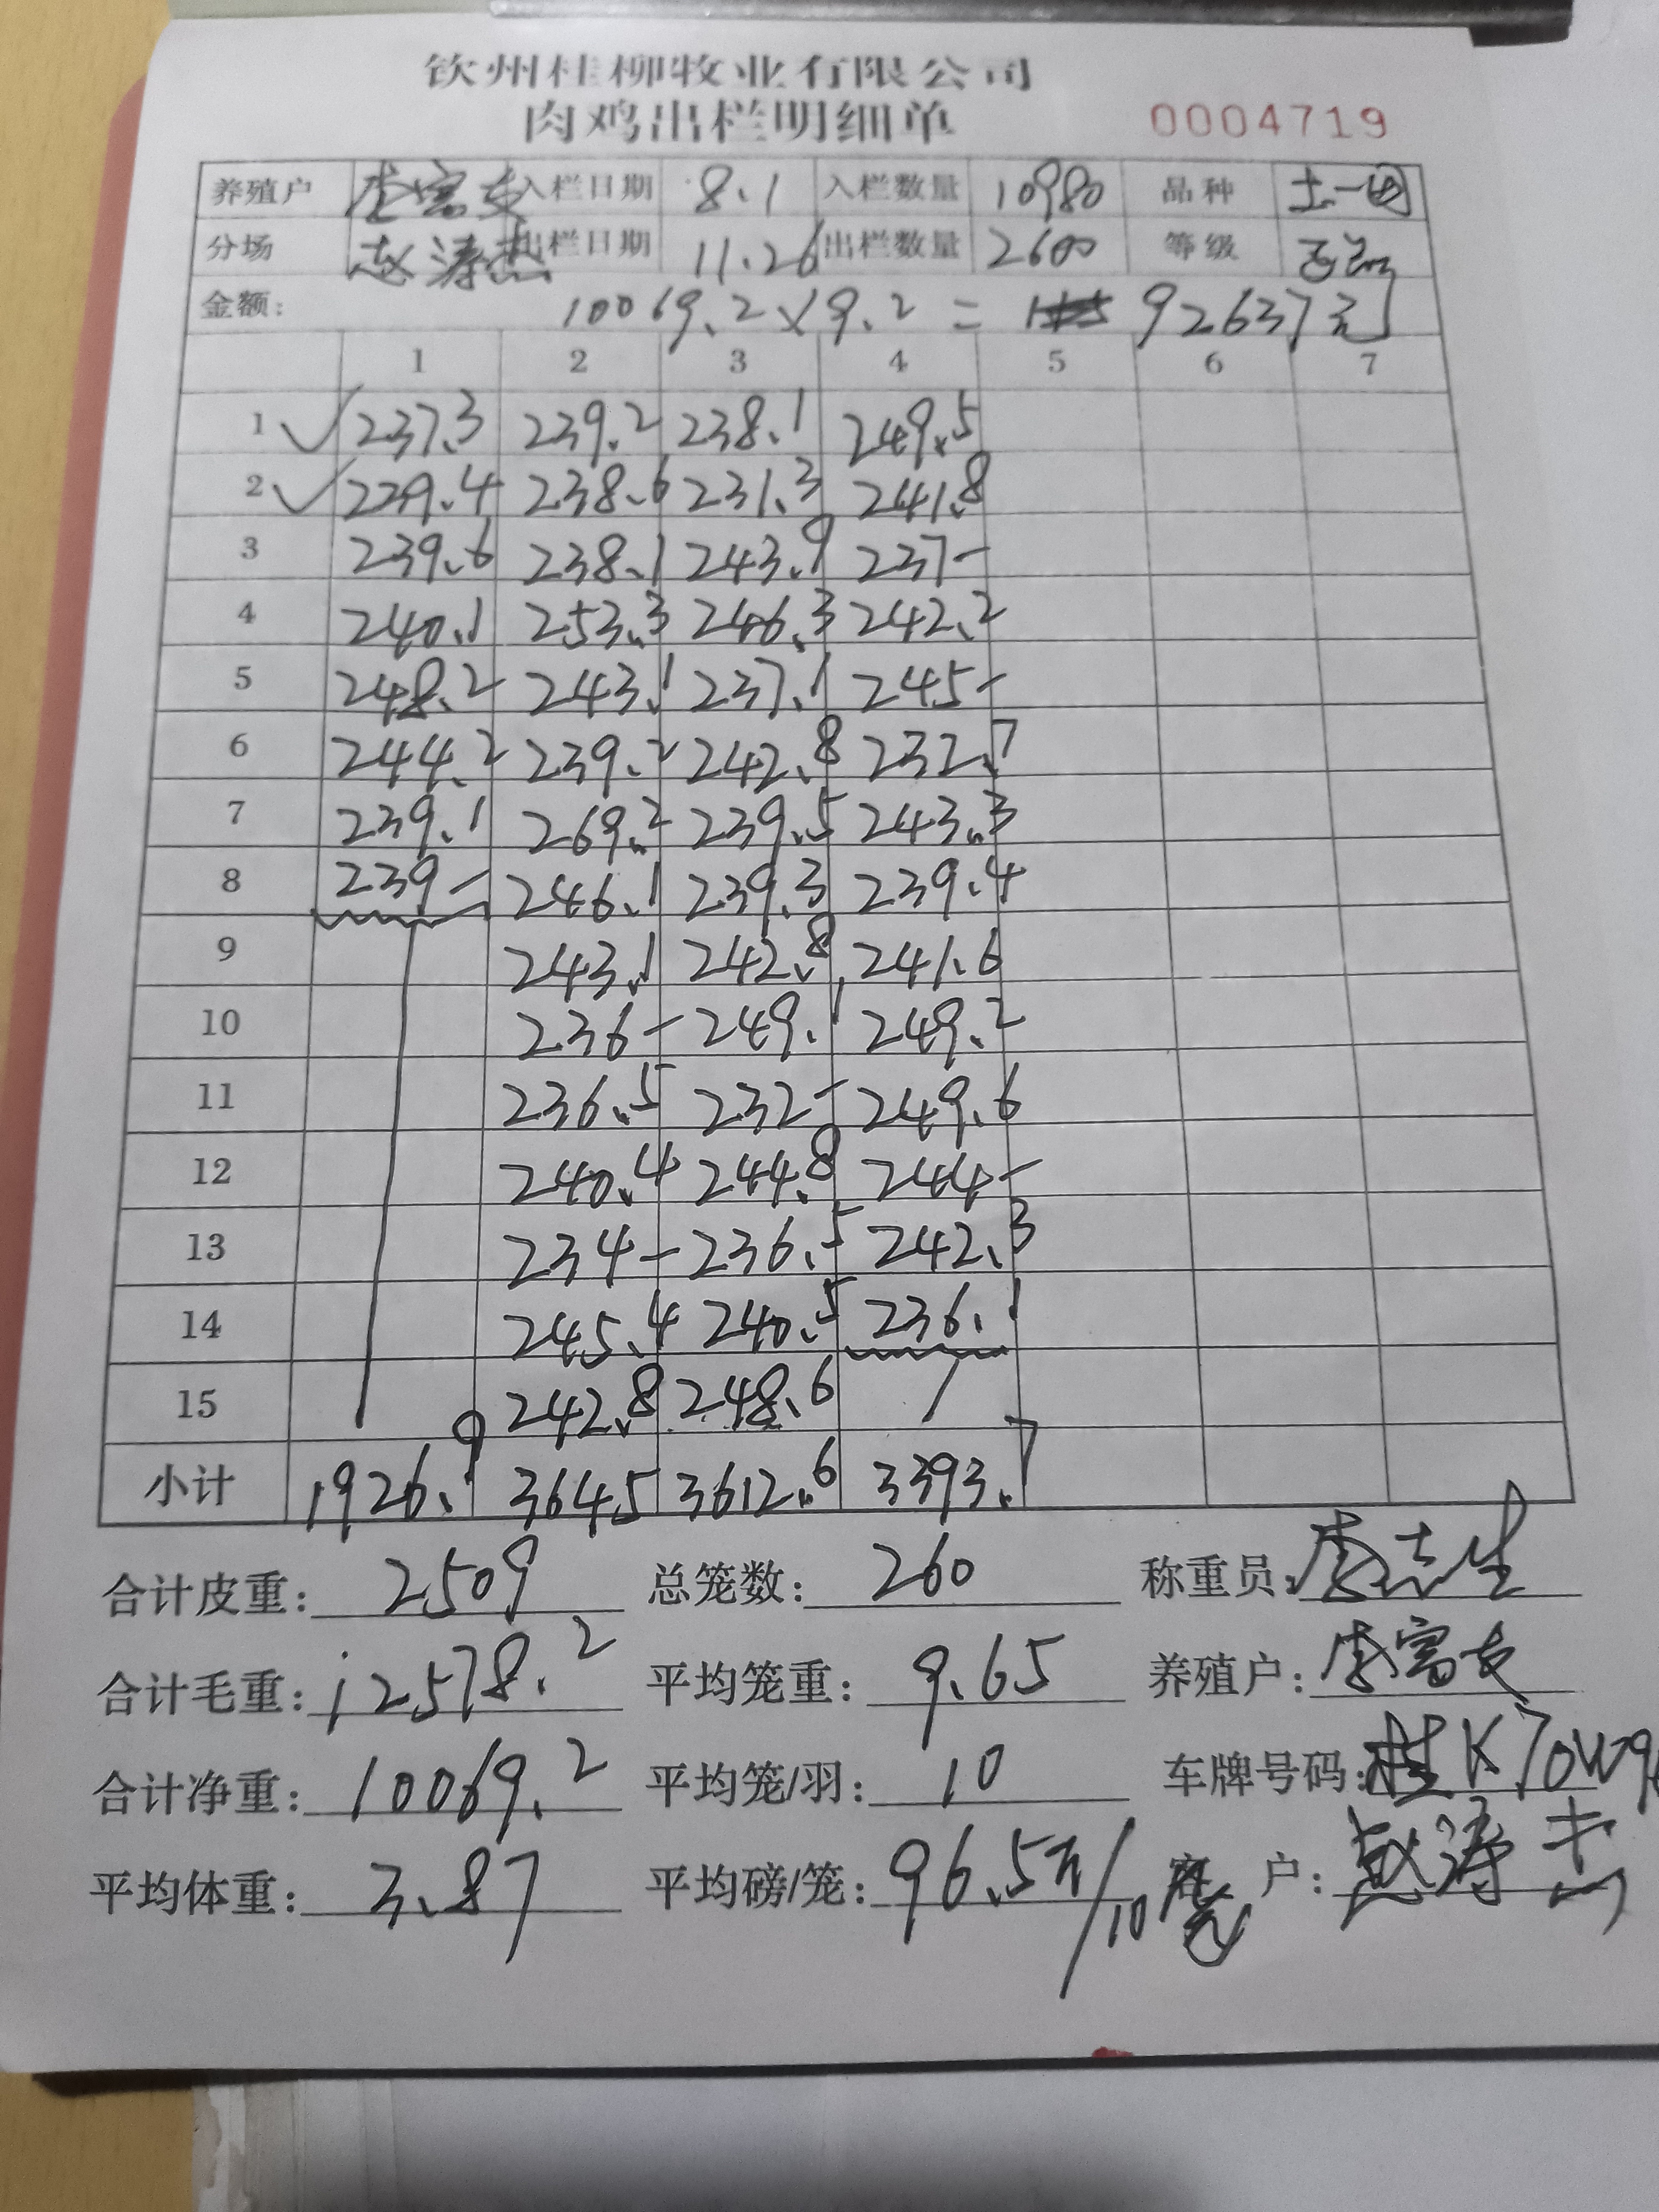 钦州桂柳牧业有限公司
肉鸡出栏明细单 0004719
养殖户 李富友 入栏日期 8.1 入栏数量 10980 品种 土一
分场 赵涛杰 出栏日期 11.26 出栏数量 2600 等级
金额: 10069.2×9.2= 92637元
1 2 3 4 5 6 7
1 237.3 239.2 238.1 249.5
2 239.4 238.6 231.3 241.8
3 239.6 238.1 243.9 237-
4 240.1 253.3 246.3 242.2
5 248.2 243.1 237.1 245-
6 244.2 239.2 242.8 232.7
7 239.1 269.2 239.5 243.3
8 239- 246.1 239.3 239.4
9 243.1 242.8 241.6
10 236- 249.1 249.2
11 236.5 232- 249.6
12 240.4 244.8 244-
13 234- 236.5 242.3
14 245.4 240.5 236.1
15 242.8 248.6
小计 1926.9 3645 3612.6 3393.7
合计皮重: 2509 总笼数: 260 称重员: 李志生
合计毛重: 12578.2 平均笼重: 9.65 养殖户: 李富友
合计净重: 10069.2 平均笼/羽: 10 车牌号码: 桂K70W9
平均体重: 3.87 平均磅/笼: 96.5斤/10 客户: 赵涛杰